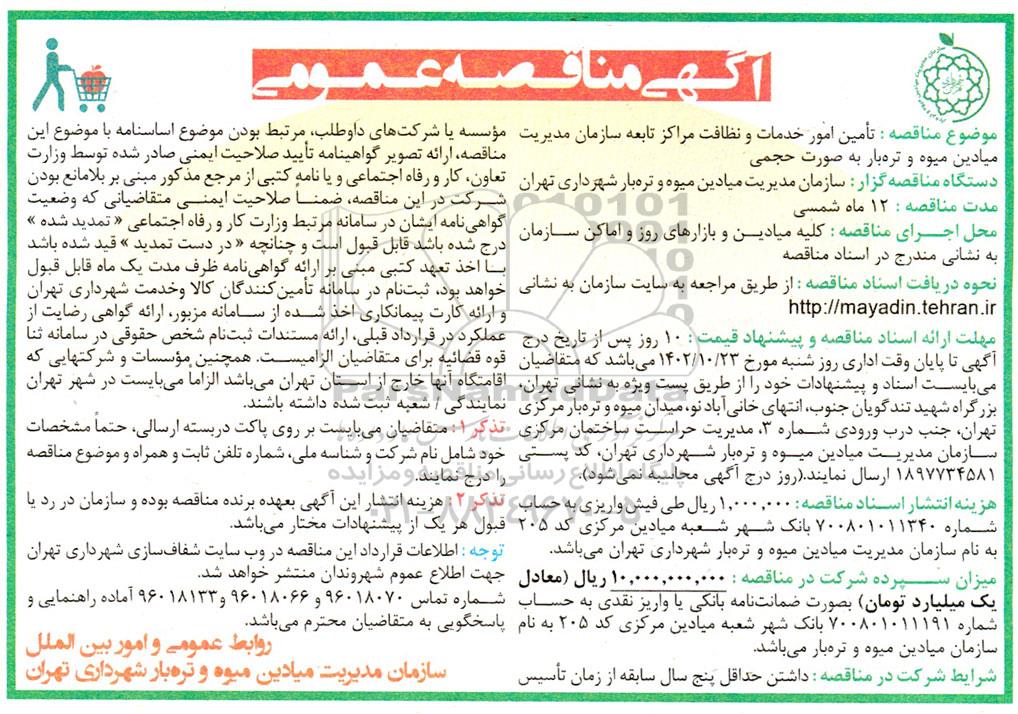 آگهی مناقصه عمومی
موضوع مناقصه : تأمین امور خدمات و نظافت مراکز تابعه سازمان مدیریت
میادین میوه و تره‌بار به صورت حجمی
دستگاه مناقصه‌گزار : سازمان مدیریت میادین میوه و تره‌بار شهرداری تهران
مدت مناقصه : ۱۲ ماه شمسی
محل اجرای مناقصه : کلیه میادین و بازارهای روز و اماکن سازمان
به نشانی مندرج در اسناد مناقصه
نحوه دریافت اسناد مناقصه : از طریق مراجعه به سایت سازمان به نشانی
http://mayadin.tehran.ir
مهلت ارائه اسناد مناقصه و پیشنهاد قیمت : ۱۰ روز پس از تاریخ درج
آگهی تا پایان وقت اداری روز شنبه مورخ ۱۴۰۲/۱۰/۲۳ می‌باشد که متقاضیان
می‌بایست اسناد و پیشنهادات خود را از طریق پست ویژه به نشانی تهران،
بزرگراه شهید تندگویان جنوب، انتهای خانی‌آباد نو، میدان میوه و تره‌بار مرکزی
تهران، جنب درب ورودی شماره ۳، مدیریت حراست ساختمان مرکزی
سازمان مدیریت میادین میوه و تره‌بار شهرداری تهران، کد پستی
۱۸۹۷۷۳۴۵۸۱ ارسال نمایند.(روز درج آگهی محاسبه نمی‌شود).
هزینه انتشار اسناد مناقصه : ۱,۰۰۰,۰۰۰ ریال طی فیش واریزی به حساب
شماره ۷۰۰۸۰۱۰۱۱۳۴۰ بانک شهر شعبه میادین مرکزی کد ۲۰۵
به نام سازمان مدیریت میادین میوه و تره‌بار شهرداری تهران می‌باشد.
میزان سپرده شرکت در مناقصه : ۱۰,۰۰۰,۰۰۰,۰۰۰ ریال (معادل
یک میلیارد تومان) بصورت ضمانت‌نامه بانکی یا واریز نقدی به حساب
شماره ۷۰۰۸۰۱۰۱۱۱۹۱ بانک شهر شعبه میادین مرکزی کد ۲۰۵ به نام
سازمان میادین میوه و تره‌بار می‌باشد.
شرایط شرکت در مناقصه : داشتن حداقل پنج سال سابقه از زمان تأسیس
مؤسسه یا شرکت‌های داوطلب، مرتبط بودن موضوع اساسنامه با موضوع این
مناقصه، ارائه تصویر گواهینامه تأیید صلاحیت ایمنی صادر شده توسط وزارت
تعاون، کار و رفاه اجتماعی و یا نامه کتبی از مرجع مذکور مبنی بر بلامانع بودن
شرکت در این مناقصه، ضمناً صلاحیت ایمنی متقاضیانی که وضعیت
گواهی‌نامه ایشان در سامانه مرتبط وزارت کار و رفاه اجتماعی « تمدید شده »
درج شده باشد قابل قبول است و چنانچه « در دست تمدید » قید شده باشد
با اخذ تعهد کتبی مبنی بر ارائه گواهی‌نامه ظرف مدت یک ماه قابل قبول
خواهد بود، ثبت‌نام در سامانه تأمین‌کنندگان کالا وخدمت شهرداری تهران
و ارائه کارت پیمانکاری اخذ شده از سامانه مزبور، ارائه گواهی رضایت از
عملکرد در قرارداد قبلی، ارائه مستندات ثبت‌نام شخص حقوقی در سامانه ثنا
قوه قضائیه برای متقاضیان الزامیست. همچنین مؤسسات و شرکتهایی که
اقامتگاه آنها خارج از استان تهران می‌باشد الزاماً می‌بایست در شهر تهران
نمایندگی / شعبه ثبت شده داشته باشند.
تذکر ۱ : متقاضیان می‌بایست بر روی پاکت دربسته ارسالی، حتماً مشخصات
خود شامل نام شرکت و شناسه ملی، شماره تلفن ثابت و همراه و موضوع مناقصه
را درج نمایند.
تذکر ۲ : هزینه انتشار این آگهی بعهده برنده مناقصه بوده و سازمان در رد یا
قبول هر یک از پیشنهادات مختار می‌باشد.
توجه : اطلاعات قرارداد این مناقصه در وب سایت شفاف‌سازی شهرداری تهران
جهت اطلاع عموم شهروندان منتشر خواهد شد.
شماره تماس ۹۶۰۱۸۰۷۰ و ۹۶۰۱۸۰۶۶ و۹۶۰۱۸۱۳۳ آماده راهنمایی و
پاسخگویی به متقاضیان محترم می‌باشد.
روابط عمومی و امور بین الملل
سازمان مدیریت میادین میوه و تره‌بار شهرداری تهران
ParsNamadData
پایگاه اطلاع رسانی مناقصه و مزایده